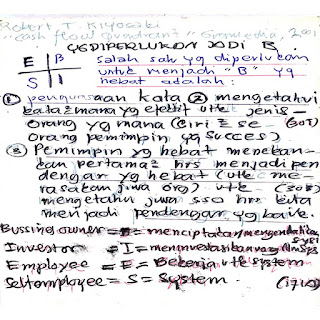 Robert T. Kiyosaki
"cash flow quadrant" Gramedia, 2001
YG DIPERLUKAN JADI B.
E B salah sak yg diperlukan
untuk menjadi "B" yg
S I hebat adalah:
① penguasaan kata ② mengetahui
kata mana yg efektif utk jenis
orang yg mana (ciri = sec (307)
orang pemimpin yg succes)
③ Pemimpin yg hebat menekan-
kan pertama = hrs menjadi pen
dengar yg hebat (utk me-
rasakan jiwa org) utk (308)
mengetahui jiwa sso hrs kita
menjadi pendengar yg baik.
Bussinq owner = B = menciptakan/mengendalikan sys
Investor = I = menginvestasikan
Employee = E = Bekerja utk system
Selfemployee = S = System.